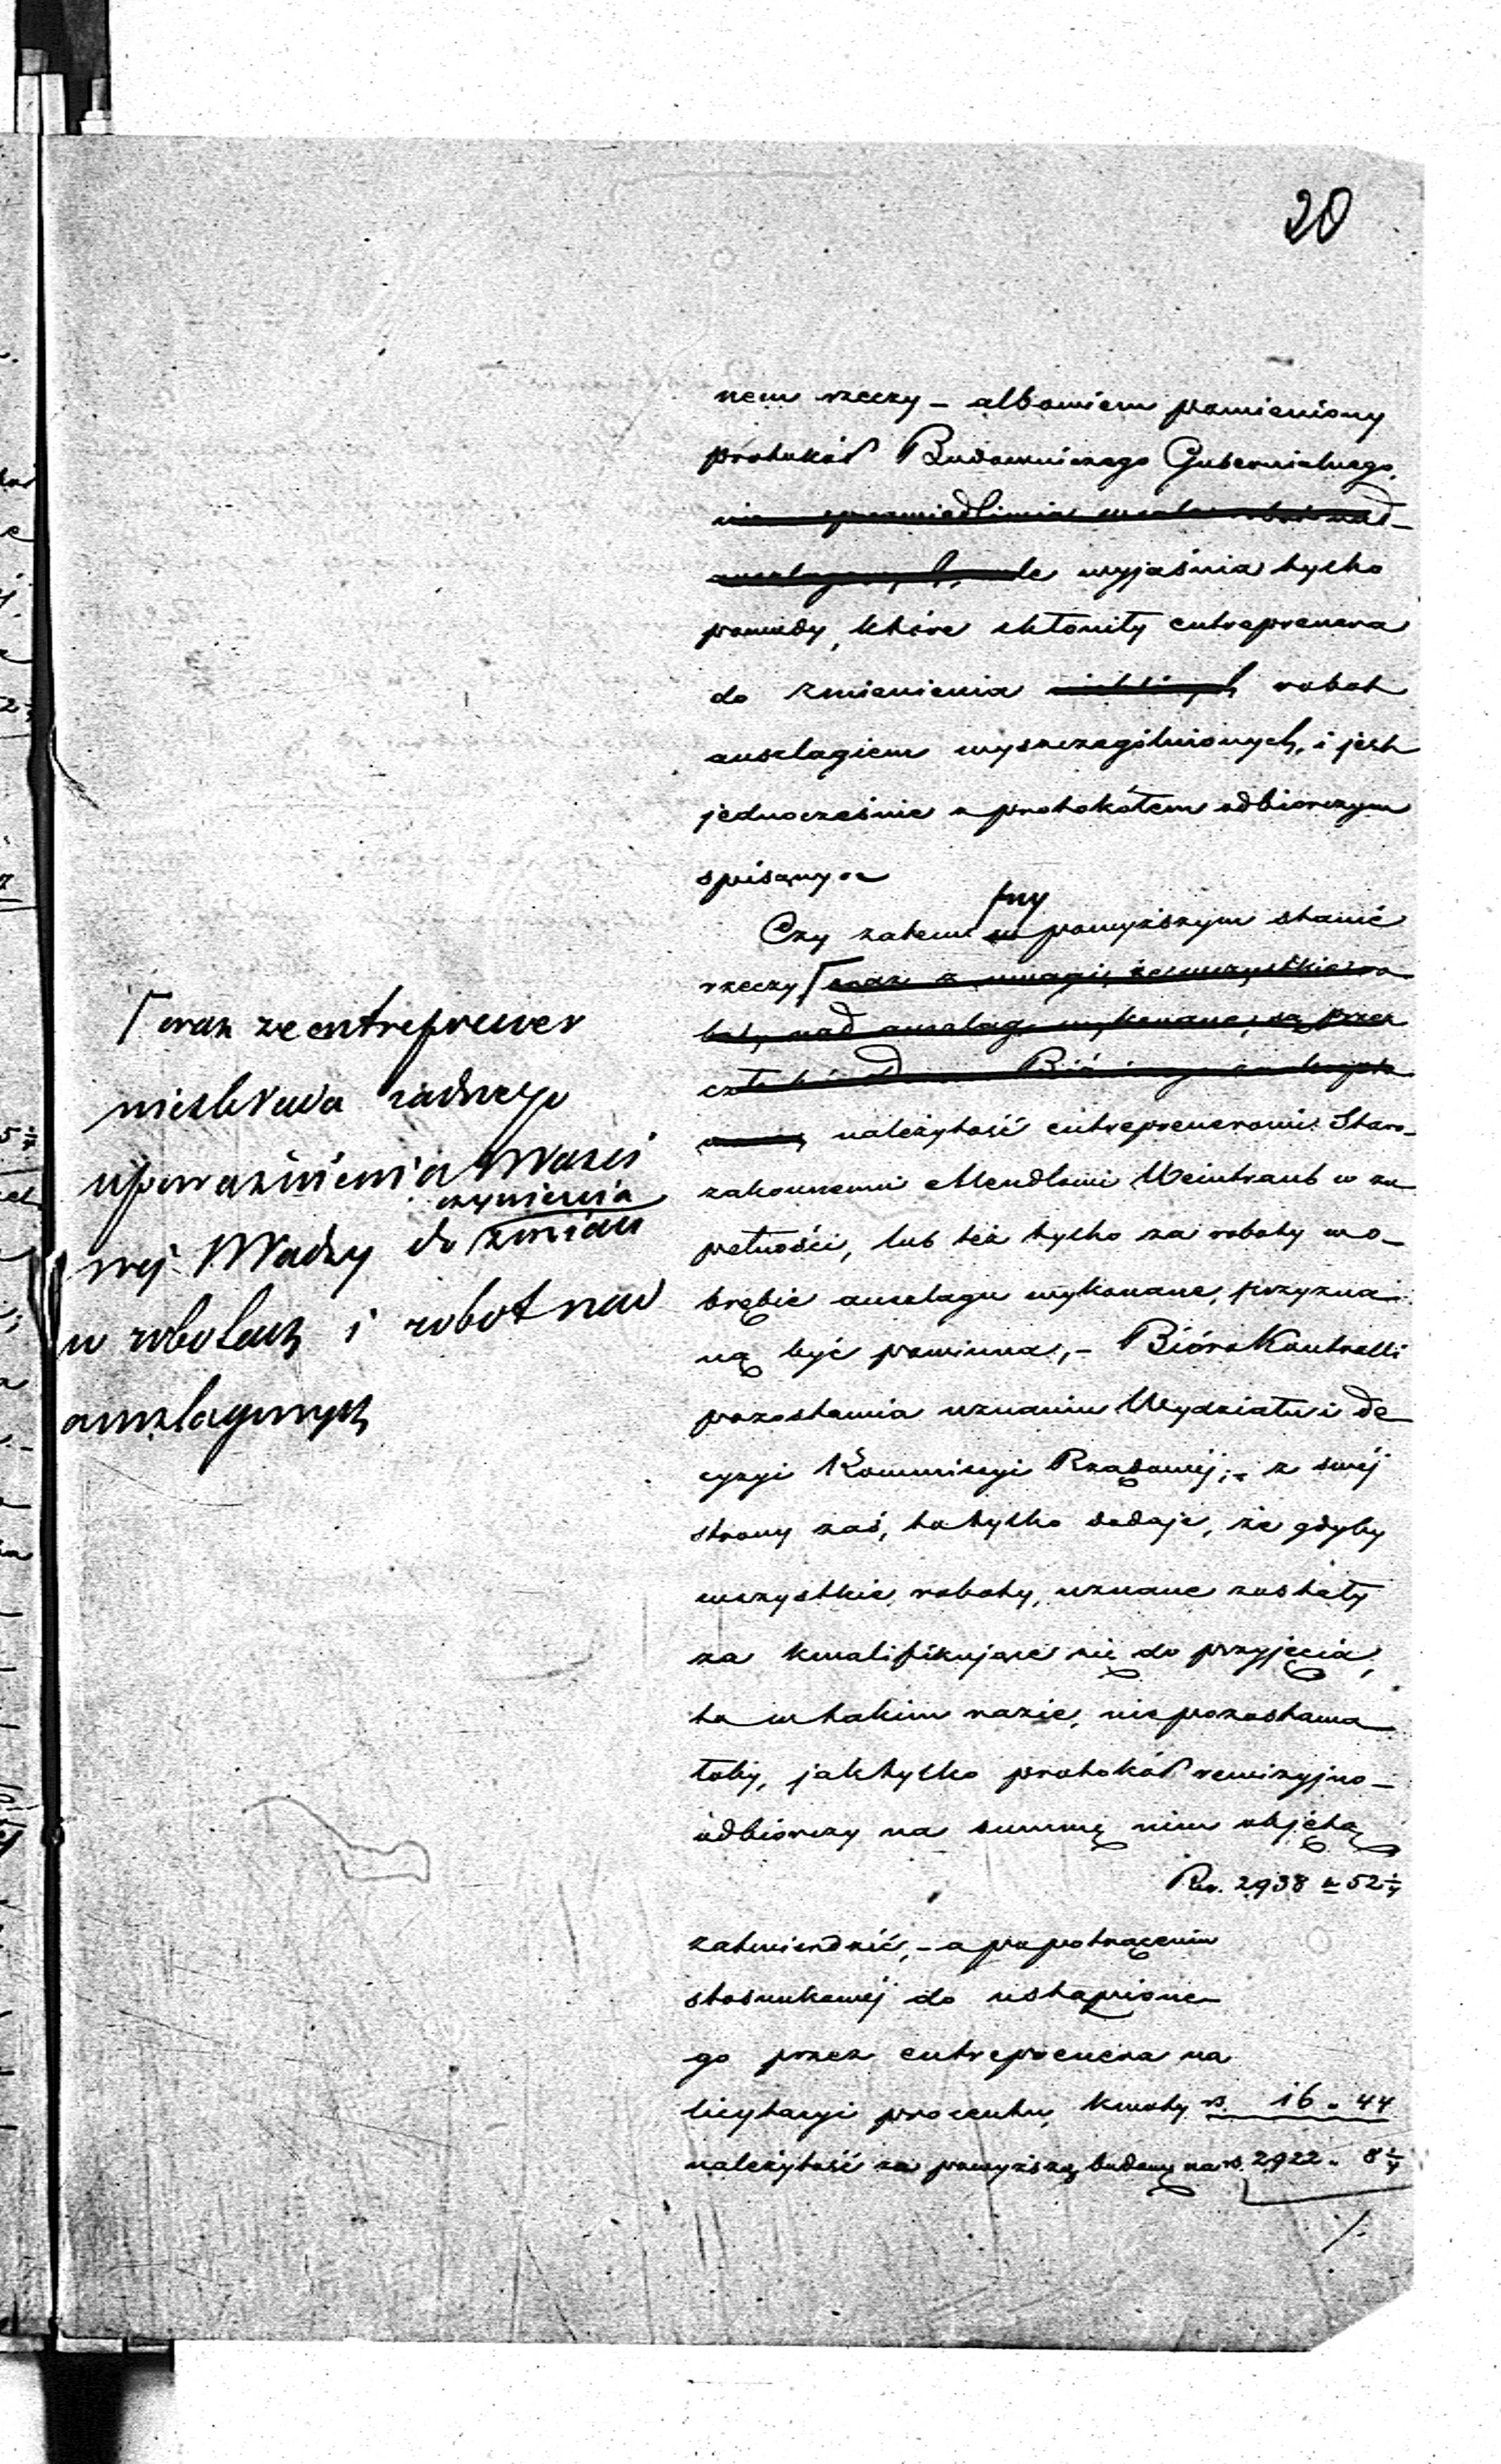 20
nem rzeczy – albowiem pomieniony
protokół Budowniczego Gubernialnego,
nie sprawiedliwia wcale robót nad-
anszlagowych, ale wyjaśnia tylko
powody, które skłoniły entreprenera
do zmienienia niektórych robót
anszlagiem wyszczególnionych, i jest
jednocześnie z protokółem odbiorczym
spisany.
Czy zatem w przy powyższym stanie
rzeczy, ⌈oraz z uwagi, że wszystkie ro
boty nad anszlag wykonane, są przez
należytość entreprenerowi Staro-
zakonnemu Mendlowi Weintraub w zu
pełności, lub też tylko za roboty wo-
brębie anszlagu wykonane, przyzna-
ną być powinna, – Bióro Kontrolli
pozostawia uznaniu Wydziału i de
cyzyi Kommissyi Rządowéj; – z swéj
strony zaś, to tylko dodaje, że gdyby
wszystkie roboty, uznane zostały
za kwalifikujące się do przyjęcia,
to w takim razie, niepozostawa
łoby, jak tylko protokół rewizyjno-
odbiorczy na summę nim objętą
Rs. 2938 k 52½
zatwierdzić, – a po potrąceniu
stosunkowéj do ustąpione-
go przez entreprenera na
licytacyi procentu, kwoty rs. 16 „ 44
należytość za powyższą budowę na rs. 2922 „ 8½
⌈oraz ze entreprener
nieokazał żadnego
upoważnienia właści
wej Władzy do czynienia zmian
w robotach i robot nad
anszlagowych